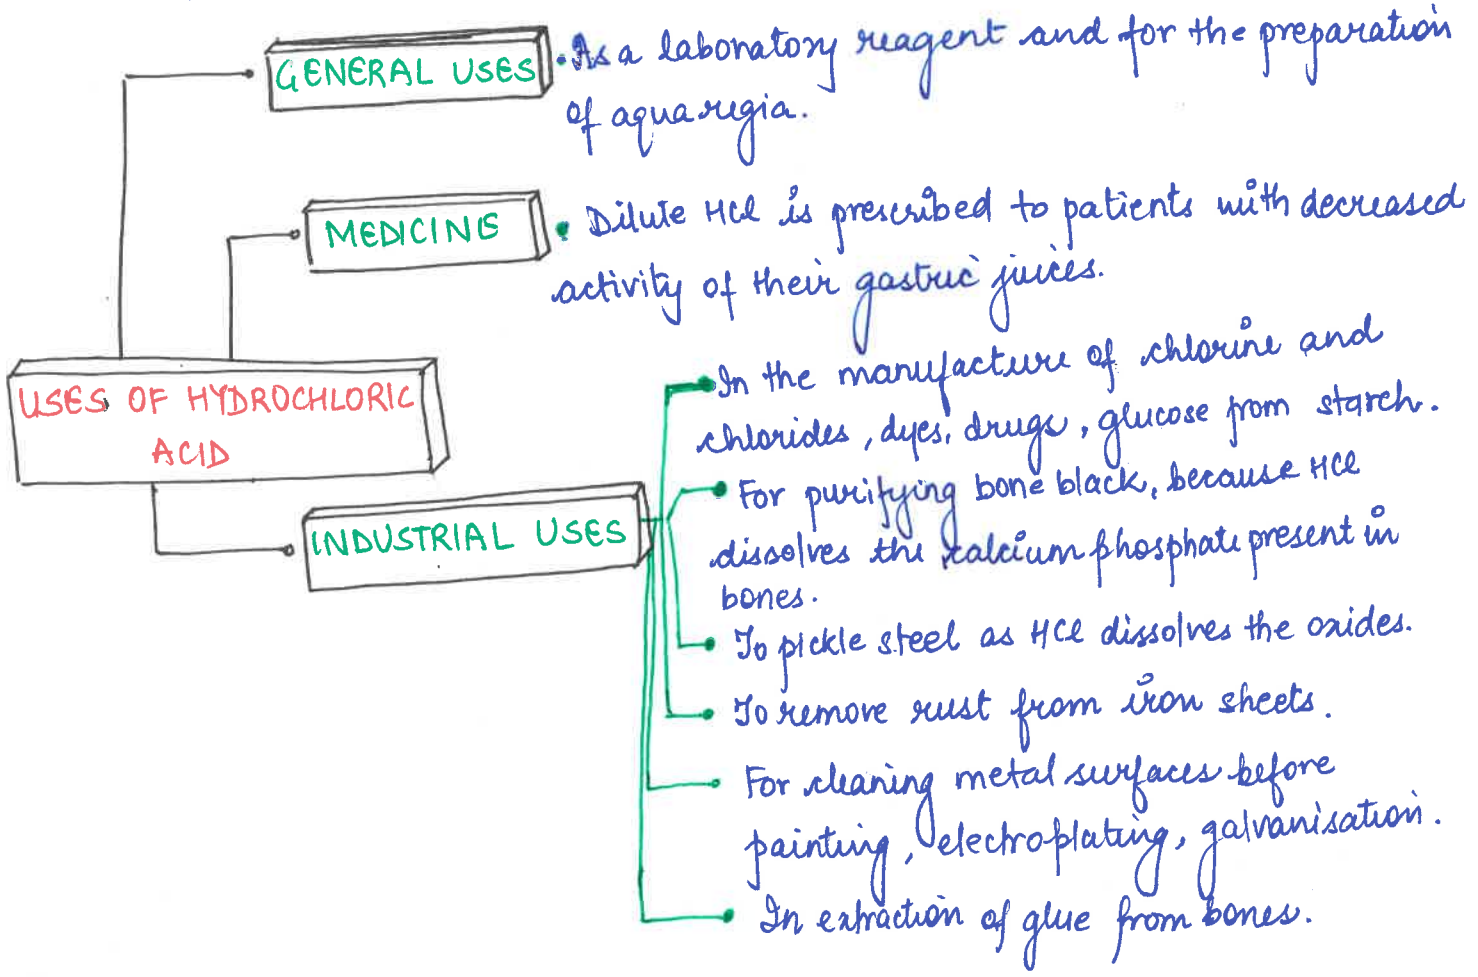 GENERAL USES
• As a laboratory reagent and for the preparation
of aquaregia.
MEDICINE
• Dilute HCl is prescribed to patients with decreased
activity of their gastric juices.
USES OF HYDROCHLORIC
ACID
INDUSTRIAL USES
In the manufacture of chlorine and
chlorides, dyes, drugs, glucose from starch.
For purifying bone black, because HCl
dissolves the calcium phosphate present in
bones.
To pickle steel as HCl dissolves the oxides.
To remove rust from iron sheets.
For cleaning metal surfaces before
painting, electroplating, galvanisation.
In extraction of glue from bones.